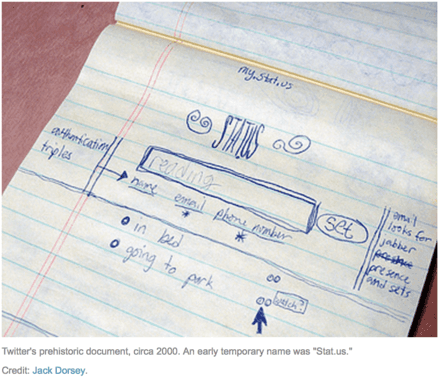 my.stat.us
STATUS
authentication
triples
reading
name email phone number
set
in bed
going to park
watch?
email
looks for
jabber
presence
and sets
Twitter's prehistoric document, circa 2000. An early temporary name was "Stat.us."
Credit: Jack Dorsey.